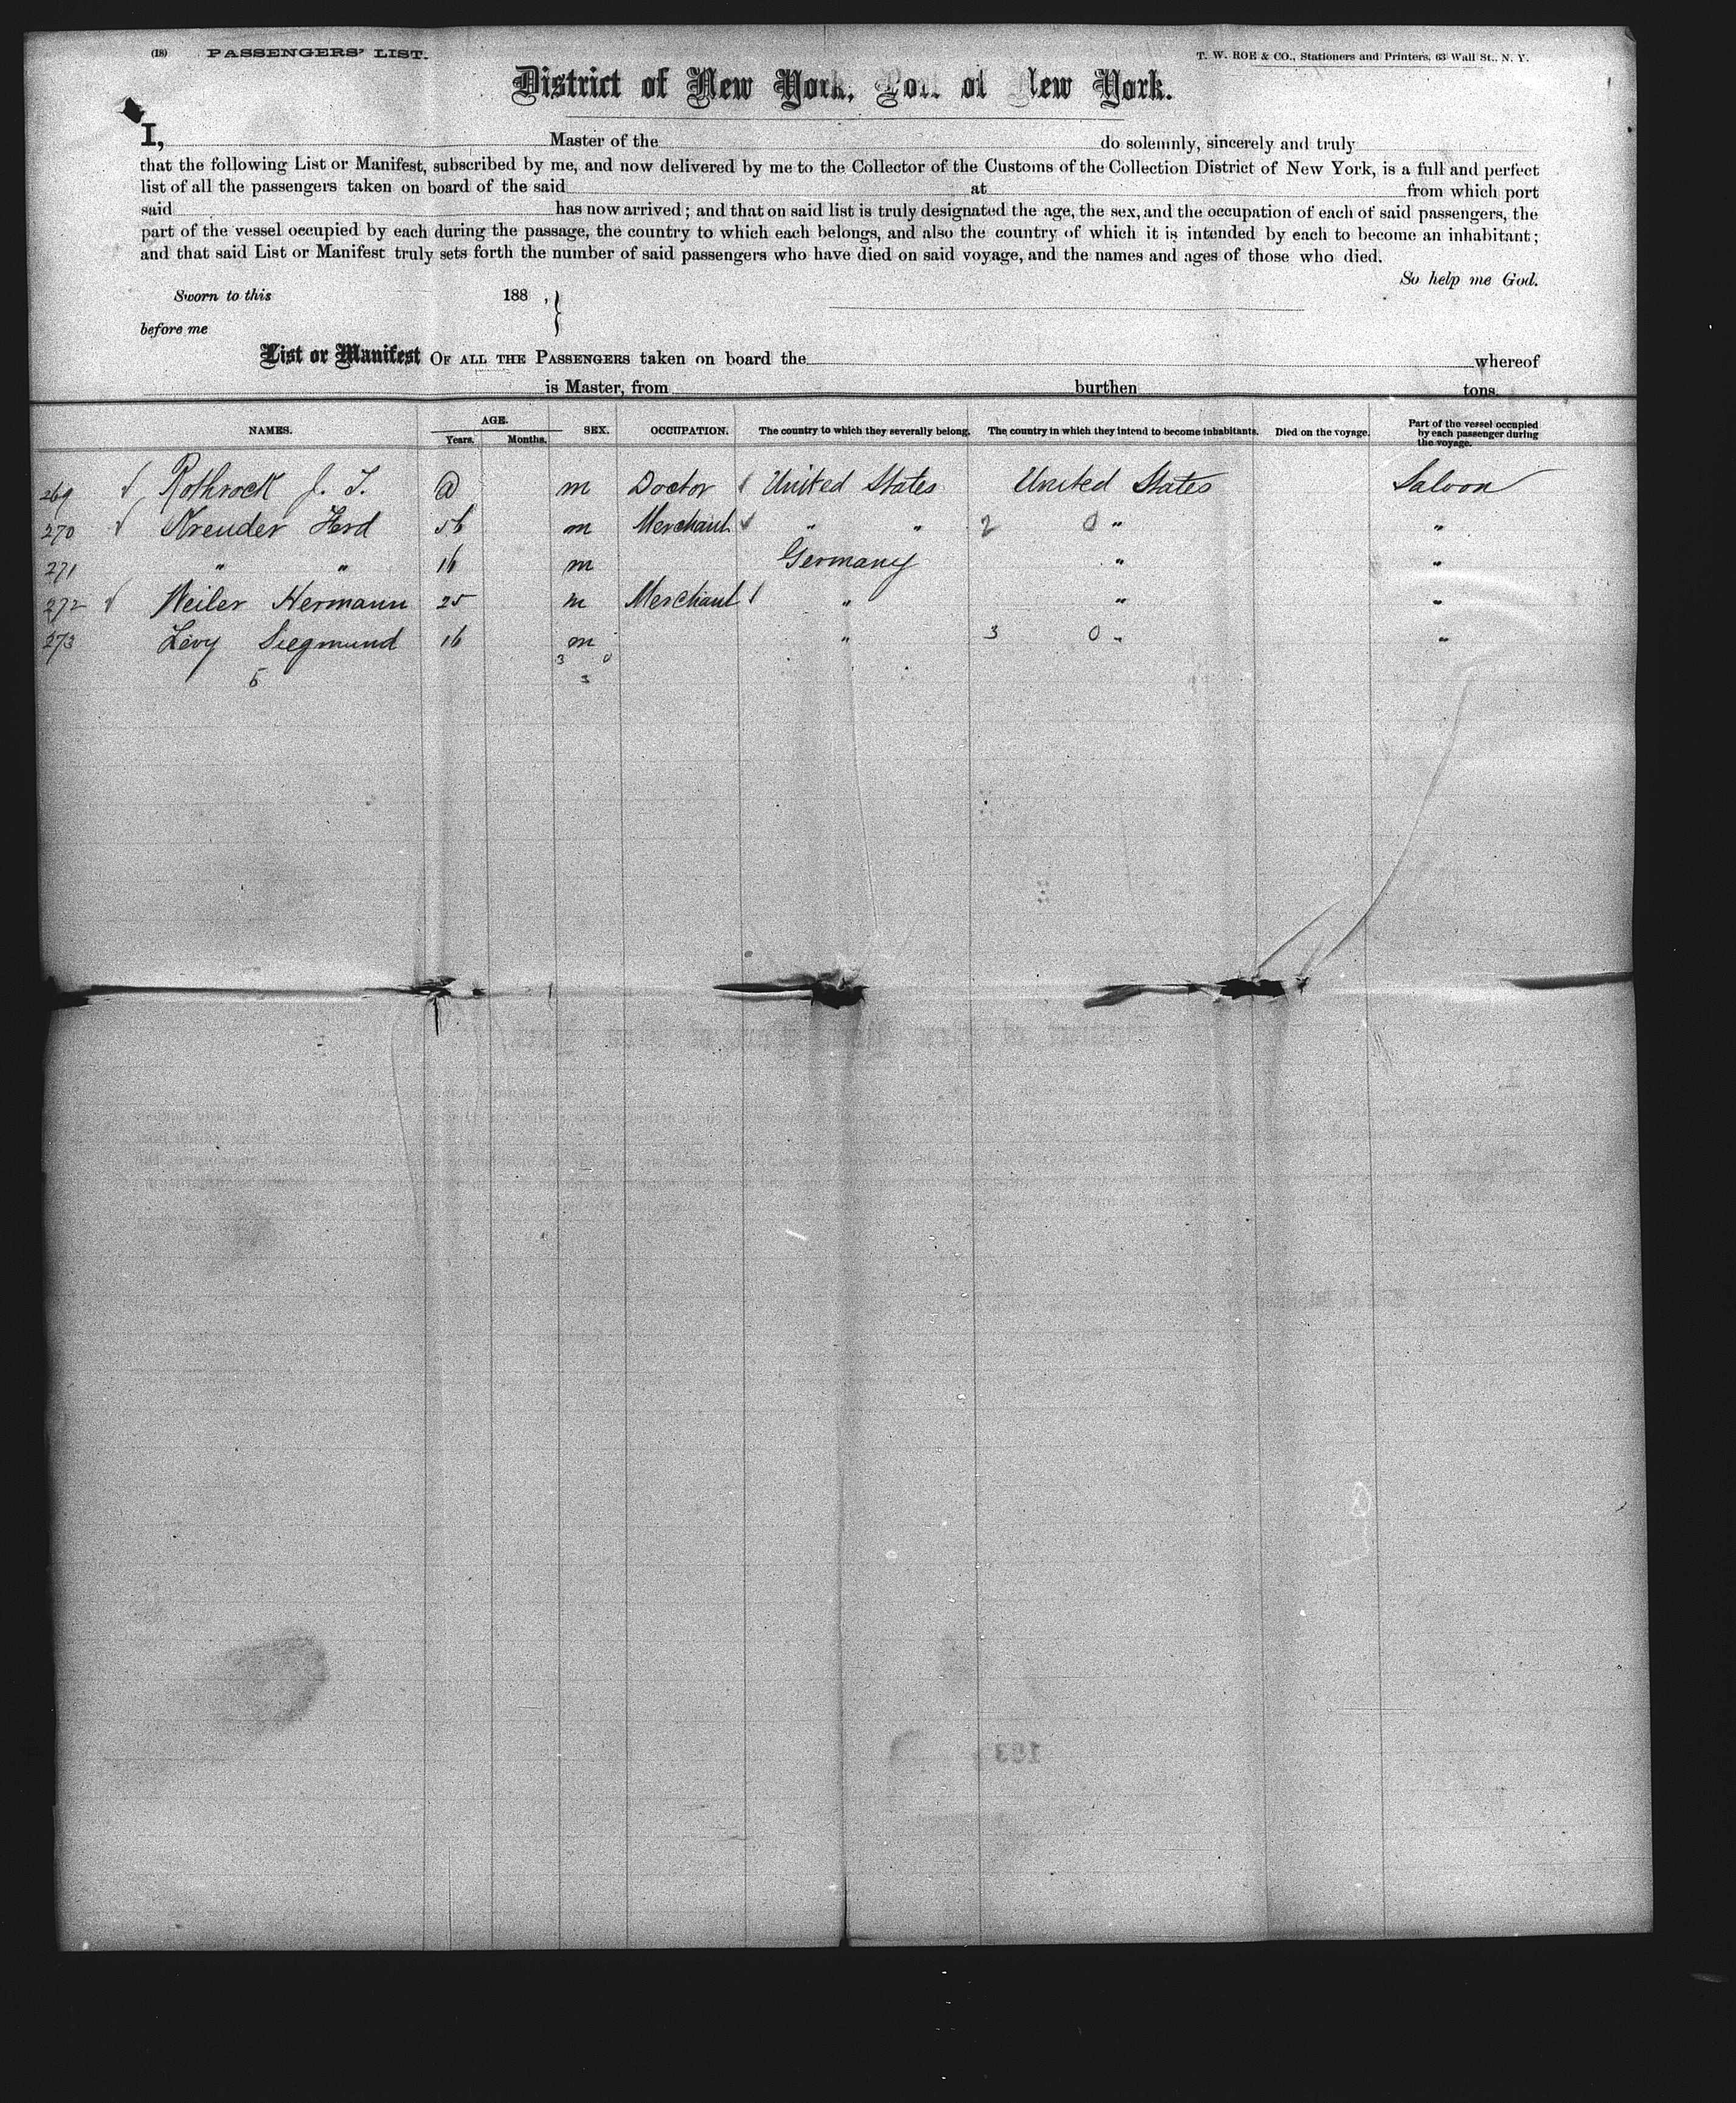 (18) PASSENGERS' LIST. T. W. ROE & CO., Stationers and Printers, 63 Wall St., N. Y.
District of New York, Port of New York.
I, Master of the do solemnly, sincerely and truly
that the following List or Manifest, subscribed by me, and now delivered by me to the Collector of the Customs of the Collection District of New York, is a full and perfect
list of all the passengers taken on board of the said at from which port
said has now arrived; and that on said list is truly designated the age, the sex, and the occupation of each of said passengers, the
part of the vessel occupied by each during the passage, the country to which each belongs, and also the country of which it is intended by each to become an inhabitant;
and that said List or Manifest truly sets forth the number of said passengers who have died on said voyage, and the names and ages of those who died.
So help me God.
Sworn to this 188 ,
before me
List or Manifest OF ALL THE PASSENGERS taken on board the whereof
is Master, from burthen tons.
NAMES. AGE. Years. Months. SEX. OCCUPATION. The country to which they severally belong. The country in which they intend to become inhabitants. Died on the voyage. Part of the vessel occupied by each passenger during the voyage.
269 Rothrock J. T. a m Doctor United States United States Saloon
270 Kreuder Ferd 56 m Merchant " " 2 0 " "
271 " " 16 m Germany " "
272 Weiler Hermann 25 m Merchant " " "
273 Levy Siegmund 16 m " 3 0 " "
3 0
5 3